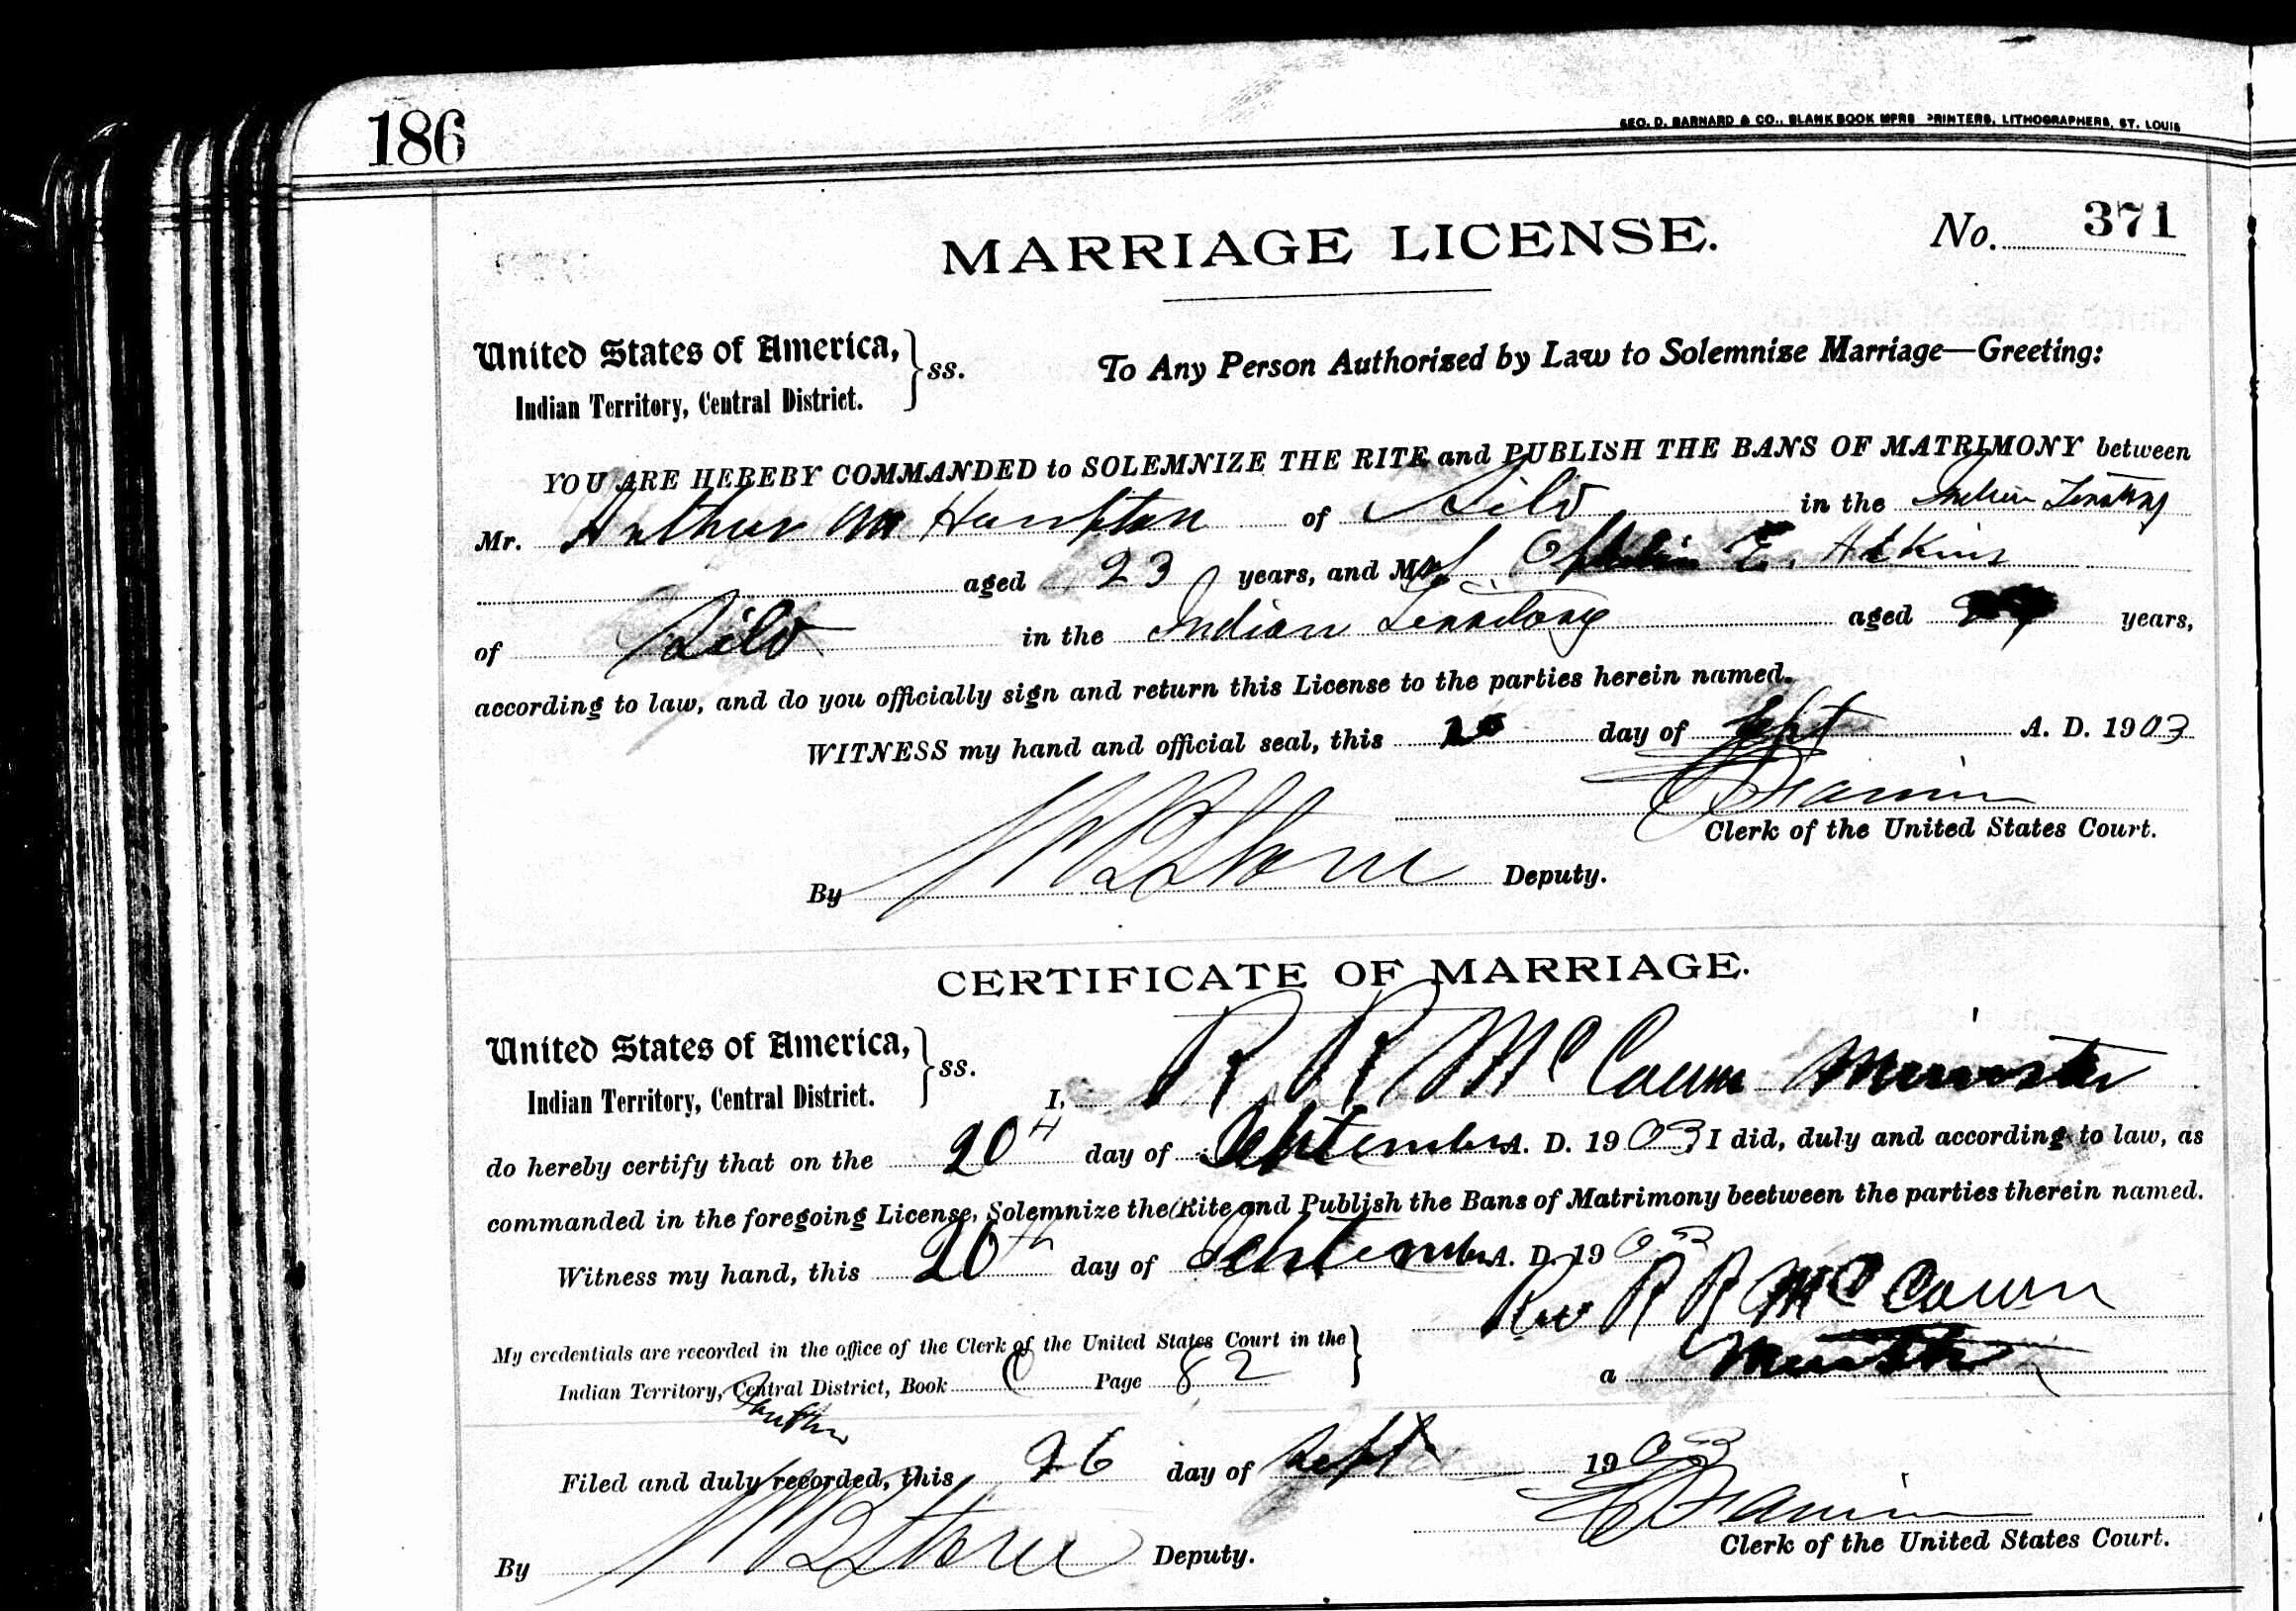 186
GEO. D. BARNARD & CO., BLANK BOOK MFRS PRINTERS, LITHOGRAPHERS, ST. LOUIS
MARRIAGE LICENSE.
No. 371
United States of America,
Indian Territory, Central District.
ss.
To Any Person Authorized by Law to Solemnize Marriage—Greeting:
YOU ARE HEREBY COMMANDED to SOLEMNIZE THE RITE and PUBLISH THE BANS OF MATRIMONY between
Mr. Arthur M Hampton of Silo in the Indian Territory
aged 23 years, and M E. Adkins
of Silo in the Indian Territory aged years,
according to law, and do you officially sign and return this License to the parties herein named.
WITNESS my hand and official seal, this day of Sept A. D. 1903
Clerk of the United States Court.
By Stone Deputy.
CERTIFICATE OF MARRIAGE.
United States of America,
Indian Territory, Central District.
ss.
I, R R McCown Minister
do hereby certify that on the 20 day of September A. D. 1903 I did, duly and according to law, as
commanded in the foregoing License, Solemnize the Rite and Publish the Bans of Matrimony beetween the parties therein named.
Witness my hand, this 20th day of September A. D. 1903
Rev R R McCown
My credentials are recorded in the office of the Clerk of the United States Court in the
Indian Territory, Central District, Book C Page 82
a Minister
Southern
Filed and duly recorded, this 26 day of Sept 1903
Clerk of the United States Court.
By Stone Deputy.